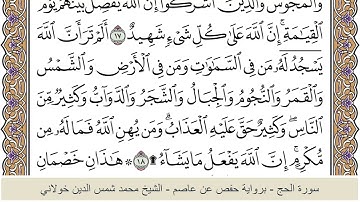 وَالْمَجُوسَ وَالَّذِينَ أَشْرَكُوا إِنَّ اللَّهَ يَفْصِلُ بَيْنَهُمْ يَوْمَ
الْقِيَامَةِ ۚ إِنَّ اللَّهَ عَلَىٰ كُلِّ شَيْءٍ شَهِيدٌ ١٧ أَلَمْ تَرَ أَنَّ اللَّهَ
يَسْجُدُ لَهُ مَن فِي السَّمَاوَاتِ وَمَن فِي الْأَرْضِ وَالشَّمْسُ
وَالْقَمَرُ وَالنُّجُومُ وَالْجِبَالُ وَالشَّجَرُ وَالدَّوَابُّ وَكَثِيرٌ مِّنَ
النَّاسِ ۖ وَكَثِيرٌ حَقَّ عَلَيْهِ الْعَذَابُ ۗ وَمَن يُهِنِ اللَّهُ فَمَا لَهُ مِن
مُّكْرِمٍ ۚ إِنَّ اللَّهَ يَفْعَلُ مَا يَشَاءُ ۩ ١٨ ۞ هَٰذَانِ خَصْمَانِ
سورة الحج - برواية حفص عن عاصم - الشيخ محمد شمس الدين خولاني